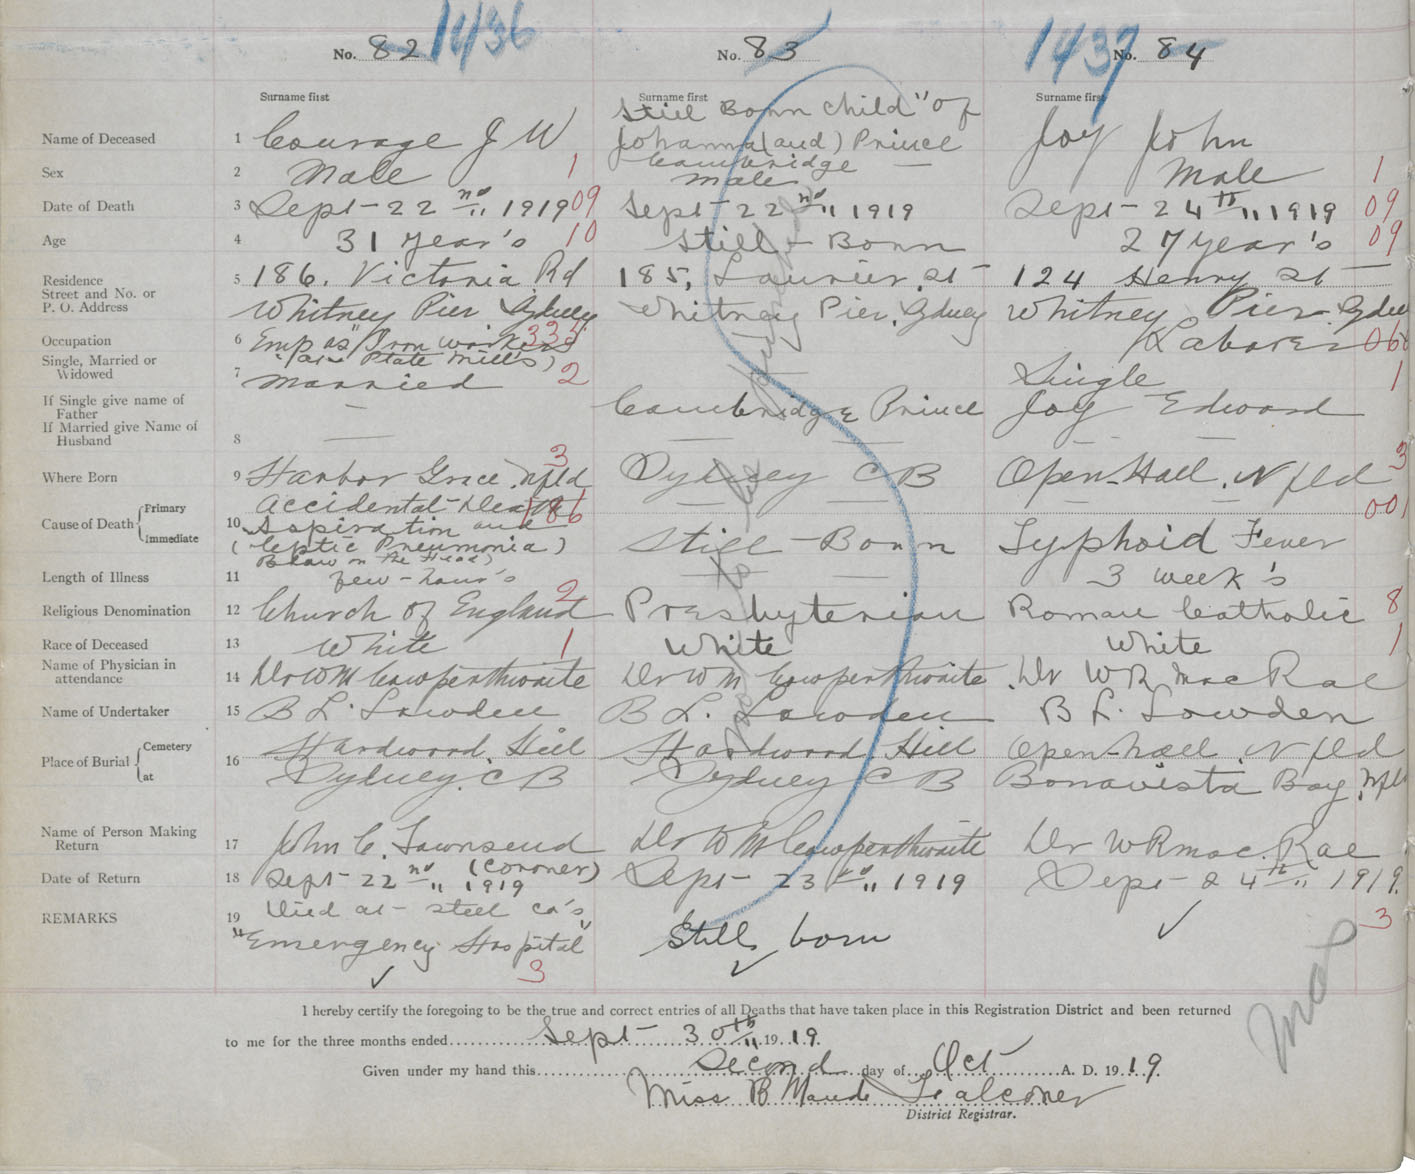 1436
1437
No. 82
No. 83
No. 84
Surname first
Surname first
Surname first
Name of Deceased 1 Courage J W
Still Born child" of
Johanna (and) Prince
Cambridge
Joy John
Sex 2 Male 1 male Male 1
Date of Death 3 Sept- 22nd" 1919 09 Sept- 22nd" 1919 Sept- 24th" 1919 09
Age 4 31 Year's 10 Still - Born 27 Year's 09
Residence
Street and No. or
P. O. Address
5 186. Victoria Rd 185, Laurier St- 124 Henry St-
Whitney Pier Sydney Whitney Pier. Sydney Whitney Pier
Occupation 6 Emp as "Iron workers
(at Plate Mills) Laborer
Single, Married or
Widowed
7 Married 2 Single 1
If Single give name of
Father
Cambridge Prince Joy Edward
If Married give Name of
Husband
8
Where Born 9 Harbor Grace. Nfld 3 Sydney C B Open-Hall. Nfld 3
Cause of Death { Primary
Immediate
10 Accidental-Death 186
Aspiration and
(Septic Pneumonia)
Blow on the Head)
Still - Born
Typhoid Fever 001
Length of Illness 11 few - hour's 3 week's
Religious Denomination 12 Church of England 2 Presbyterian Roman Catholic 8
Race of Deceased 13 White 1 White White 1
Name of Physician in
attendance
14 Dr W M Cowperthwaite Dr W M Cowperthwaite Dr W R Mac Rae
Name of Undertaker 15 B L. Lowden B L. Lowden B L. Lowden
Place of Burial { Cemetery
at
16 Hardwood Hill Hardwood Hill Open-hall. Nfld
Sydney. C B Sydney C B Bonavista Bay, Nfld
Name of Person Making
Return
17 John C. Townsend Dr W M Cowperthwaite Dr W R Mac. Rae
(Coroner)
Date of Return 18 Sept- 22nd" 1919 Sept- 23rd" 1919 Sept- 24th" 1919.
REMARKS 19 Died at - steel co's
"Emergency Hospital"
3
Still born
3
not to be
I hereby certify the foregoing to be the true and correct entries of all Deaths that have taken place in this Registration District and been returned
to me for the three months ended Sept- 30th" 1919.
Given under my hand this Second day of Oct A. D. 1919.
Miss B Maude Falconer
District Registrar.